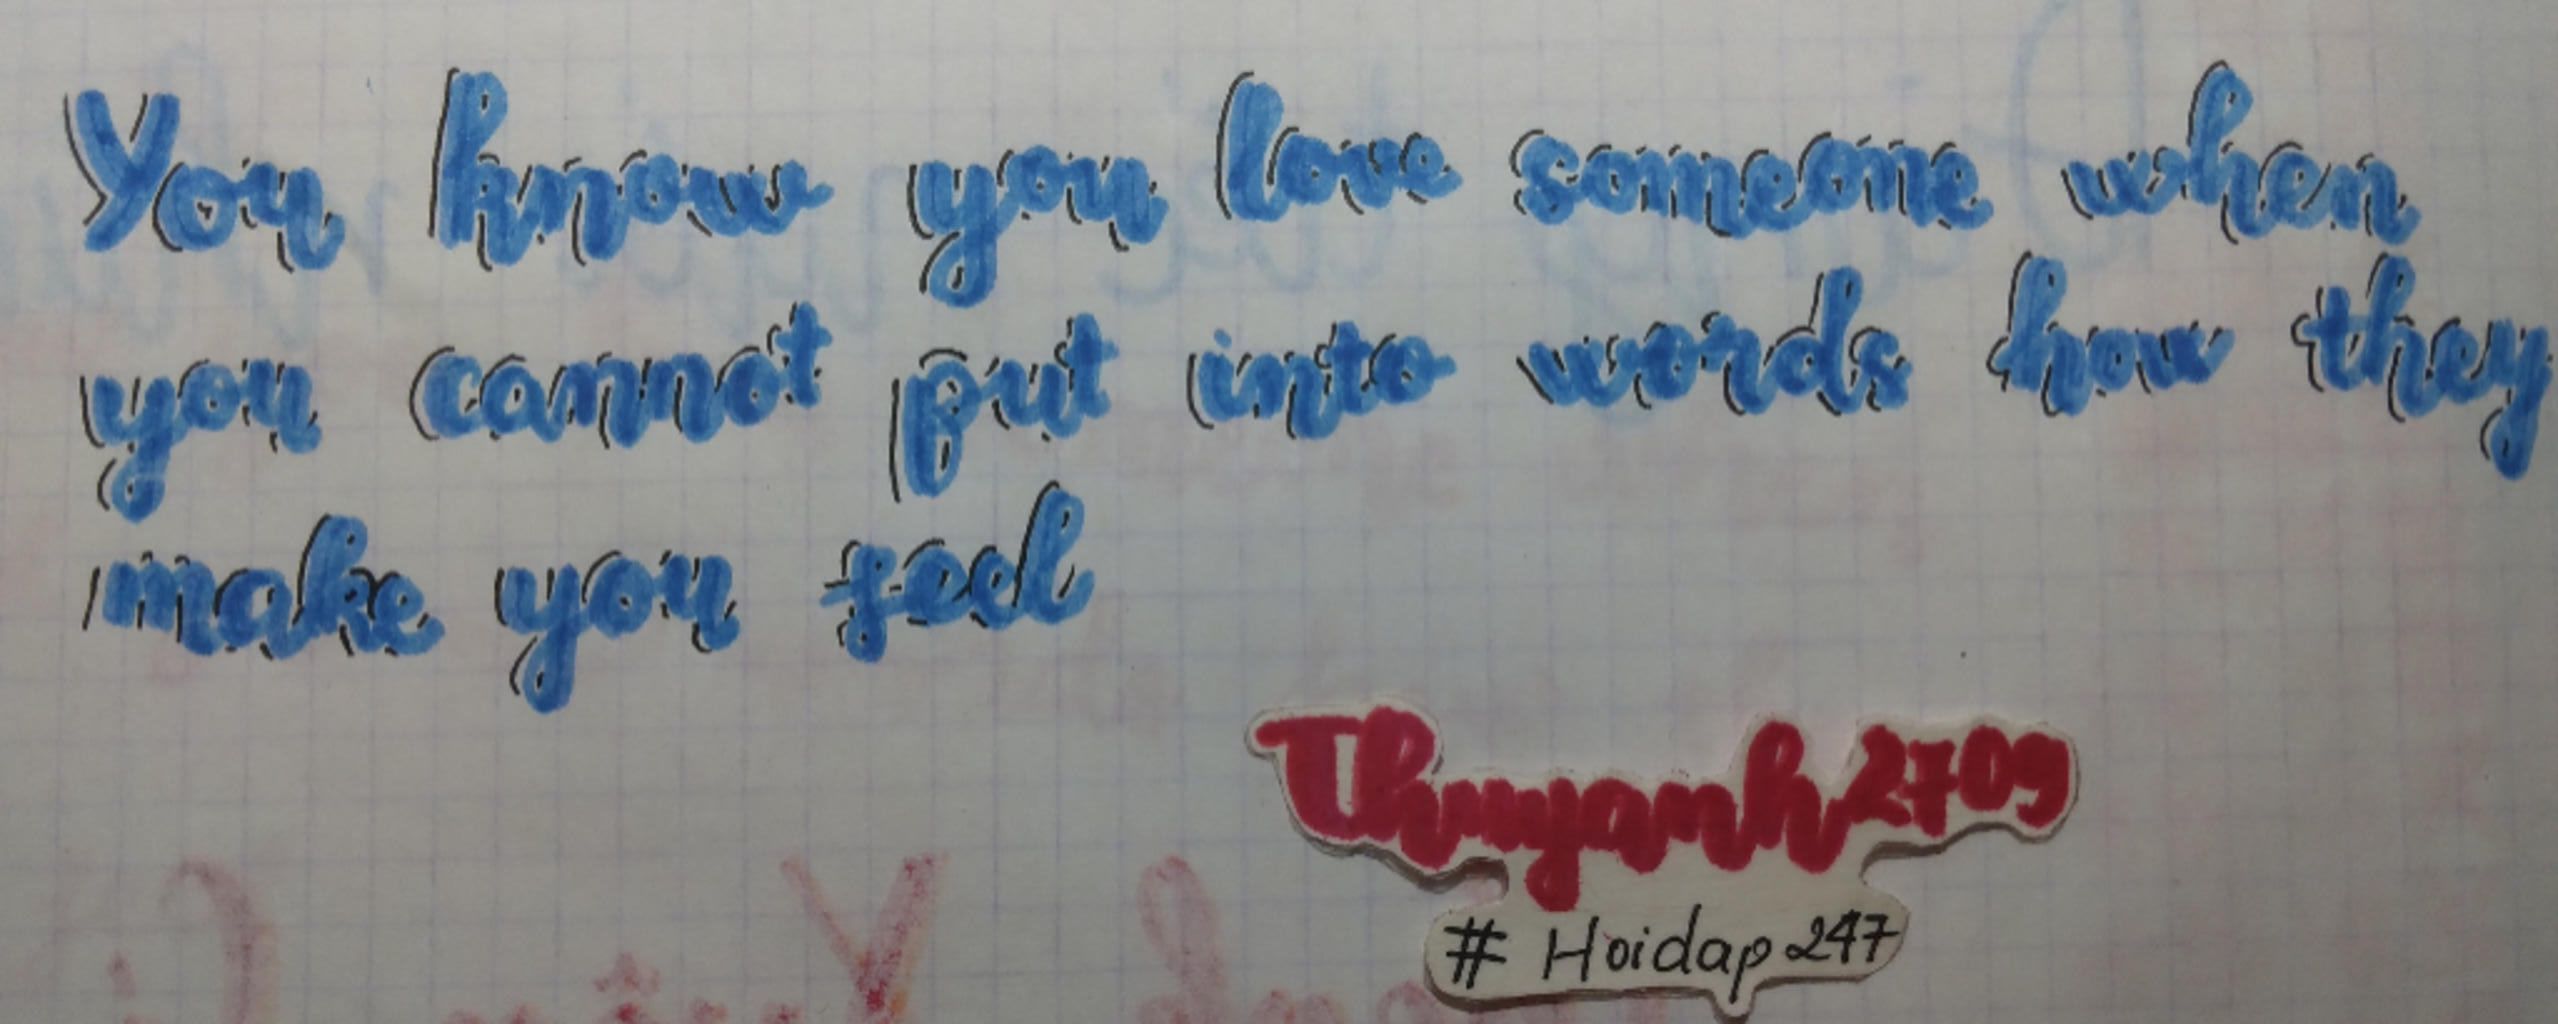 You know you love someone when
you cannot put into words how they
make you feel
Thuyanh2709
# Hoidap247